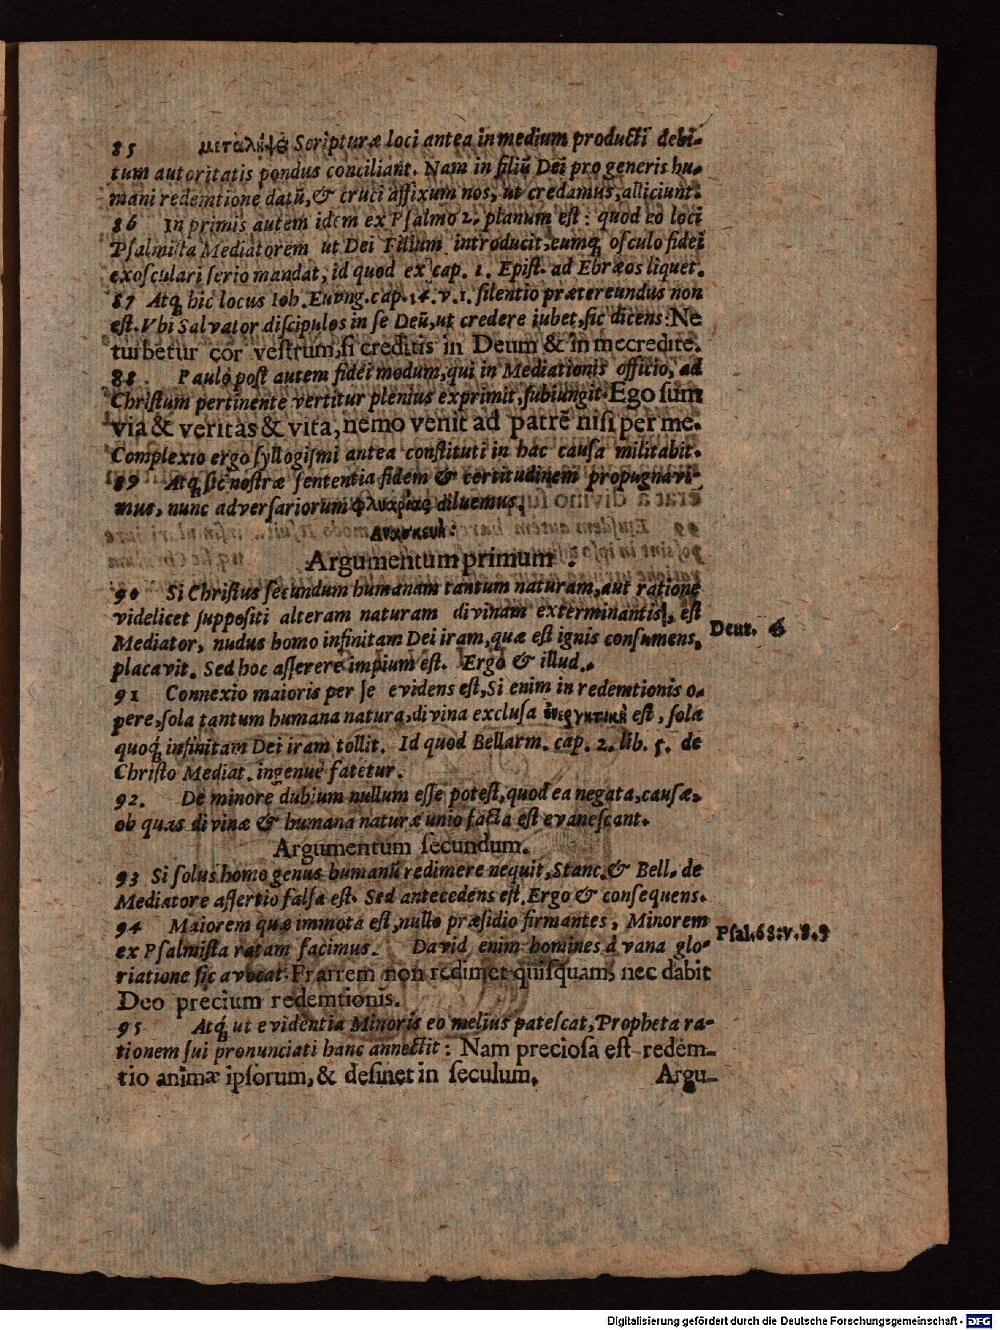 85 μεταλήψϵ Scripturæ loci antea in medium producti debi-
tum autoritatis pondus conciliant. Nam in filiū Dei pro generis hu-
mani redemtione datū, & cruci affixum nos, ut credamus, alliciunt.
86 In primis autem idem ex Psalmo 2. planum est: quod eo loci
Psalmista Mediatorem ut Dei Filium introducit, eumq́; osculo fidei
exosculari serio mandat, id quod ex cap. 1. Epist. ad Ebræos liquet.
87 Atq́; hic locus Ioh. Euvng. cap. 14. v. 1. silentio prætereundus non
est. Vbi Salvator discipulos in se Deū, ut credere iubet, sic dicens: Ne
turbetur cor vestrum, si creditis in Deum & in me credite.
88. Paulò post autem fidei modum, qui in Mediationis officio, ad
Christum pertinente vertitur plenius exprimit, subiungit. Ego sum
via & veritas & vita, nemo venit ad patrē nisi per me.
Complexio ergo syllogismi antea constituti in hac causa militabit.
89 Atq́; sic nostræ sententia fidem & certitudinem propugnavi-
mus, nunc adversariorum φλυαρίας diluemus.
Argumentum primum.
90 Si Christus secundum humanam tantum naturam, aut ratione
videlicet suppositi alteram naturam divinam exterminantis, est
Mediator, nudus homo infinitam Dei iram, quæ est ignis consumens,
Deut. 6
placavit. Sed hoc asserere impium est. Ergo & illud.
91 Connexio maioris per se evidens est, Si enim in redemtionis o-
pere, sola tantum humana natura, divina exclusa ἐνεργητικὴ est, sola
quoq́; infinitam Dei iram tollit. Id quod Bellarm. cap. 2. lib. 5. de
Christo Mediat. ingenuè fatetur.
92. De minore dubium nullum esse potest, quod ea negata, causæ,
ob quas divinæ & humana naturæ unio facta est evanescant.
Argumentum secundum.
93 Si solus homo genus humanū redimere nequit, Stanc. & Bell. de
Mediatore assertio falsa est. Sed antecedens est. Ergo & consequens.
94 Maiorem quæ immota est, nullo præsidio firmantes, Minorem
Psal. 68: v. 8. 9
ex Psalmista ratam facimus. David enim homines à vana glo-
riatione sic avocat: Frarrem non redimet quisquam, nec dabit
Deo precium redemtionis.
95 Atq́; ut evidentia Minoris eo melius patescat, Propheta ra-
tionem sui pronunciati hanc annectit: Nam preciosa est redem-
tio animæ ipsorum, & desinet in seculum.
Argu-
Digitalisierung gefördert durch die Deutsche Forschungsgemeinschaft - DFG